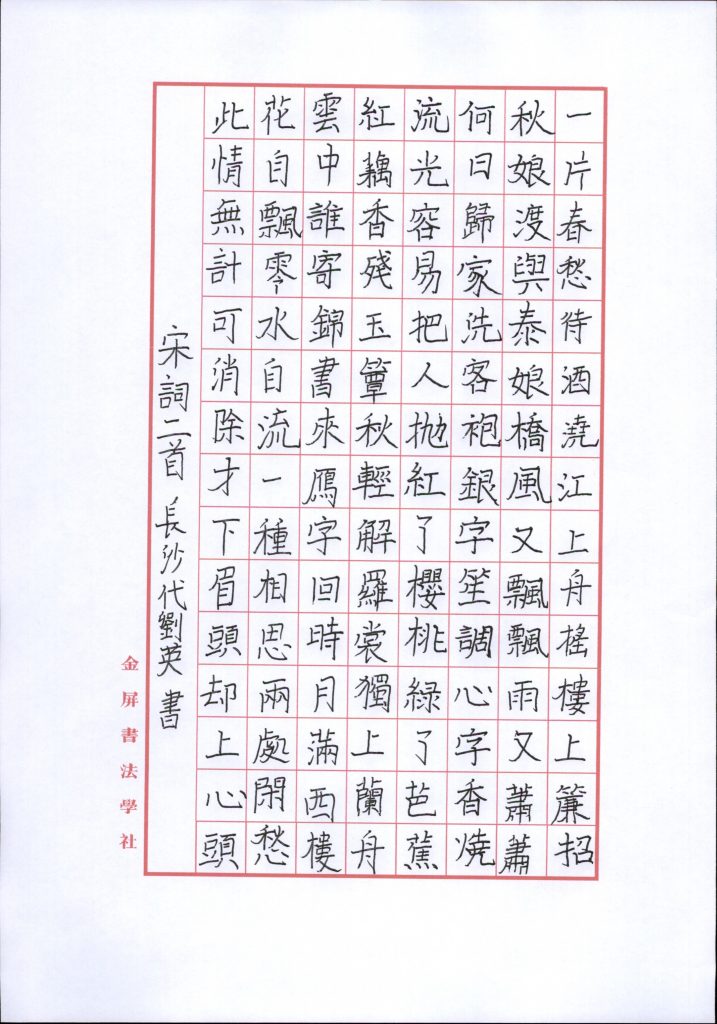 一片春愁待酒澆江上舟榣樓上簾招
秋娘渡與泰娘橋風又飄飄雨又蕭蕭
何日歸家洗客袍銀字笙調心字香燒
流光容易把人拋紅了櫻桃綠了芭蕉
紅藕香殘玉簟秋輕解羅裳獨上蘭舟
雲中誰寄錦書來鴈字回時月滿西樓
花自飄零水自流一種相思兩處閑愁
此情無計可消除才下眉頭却上心頭
宋詞二首 長沙代劉英書
金屏書法學社